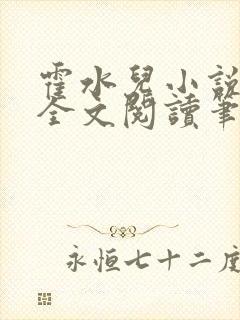 霍水兒小說
全文閱讀筆
永恒七十二度